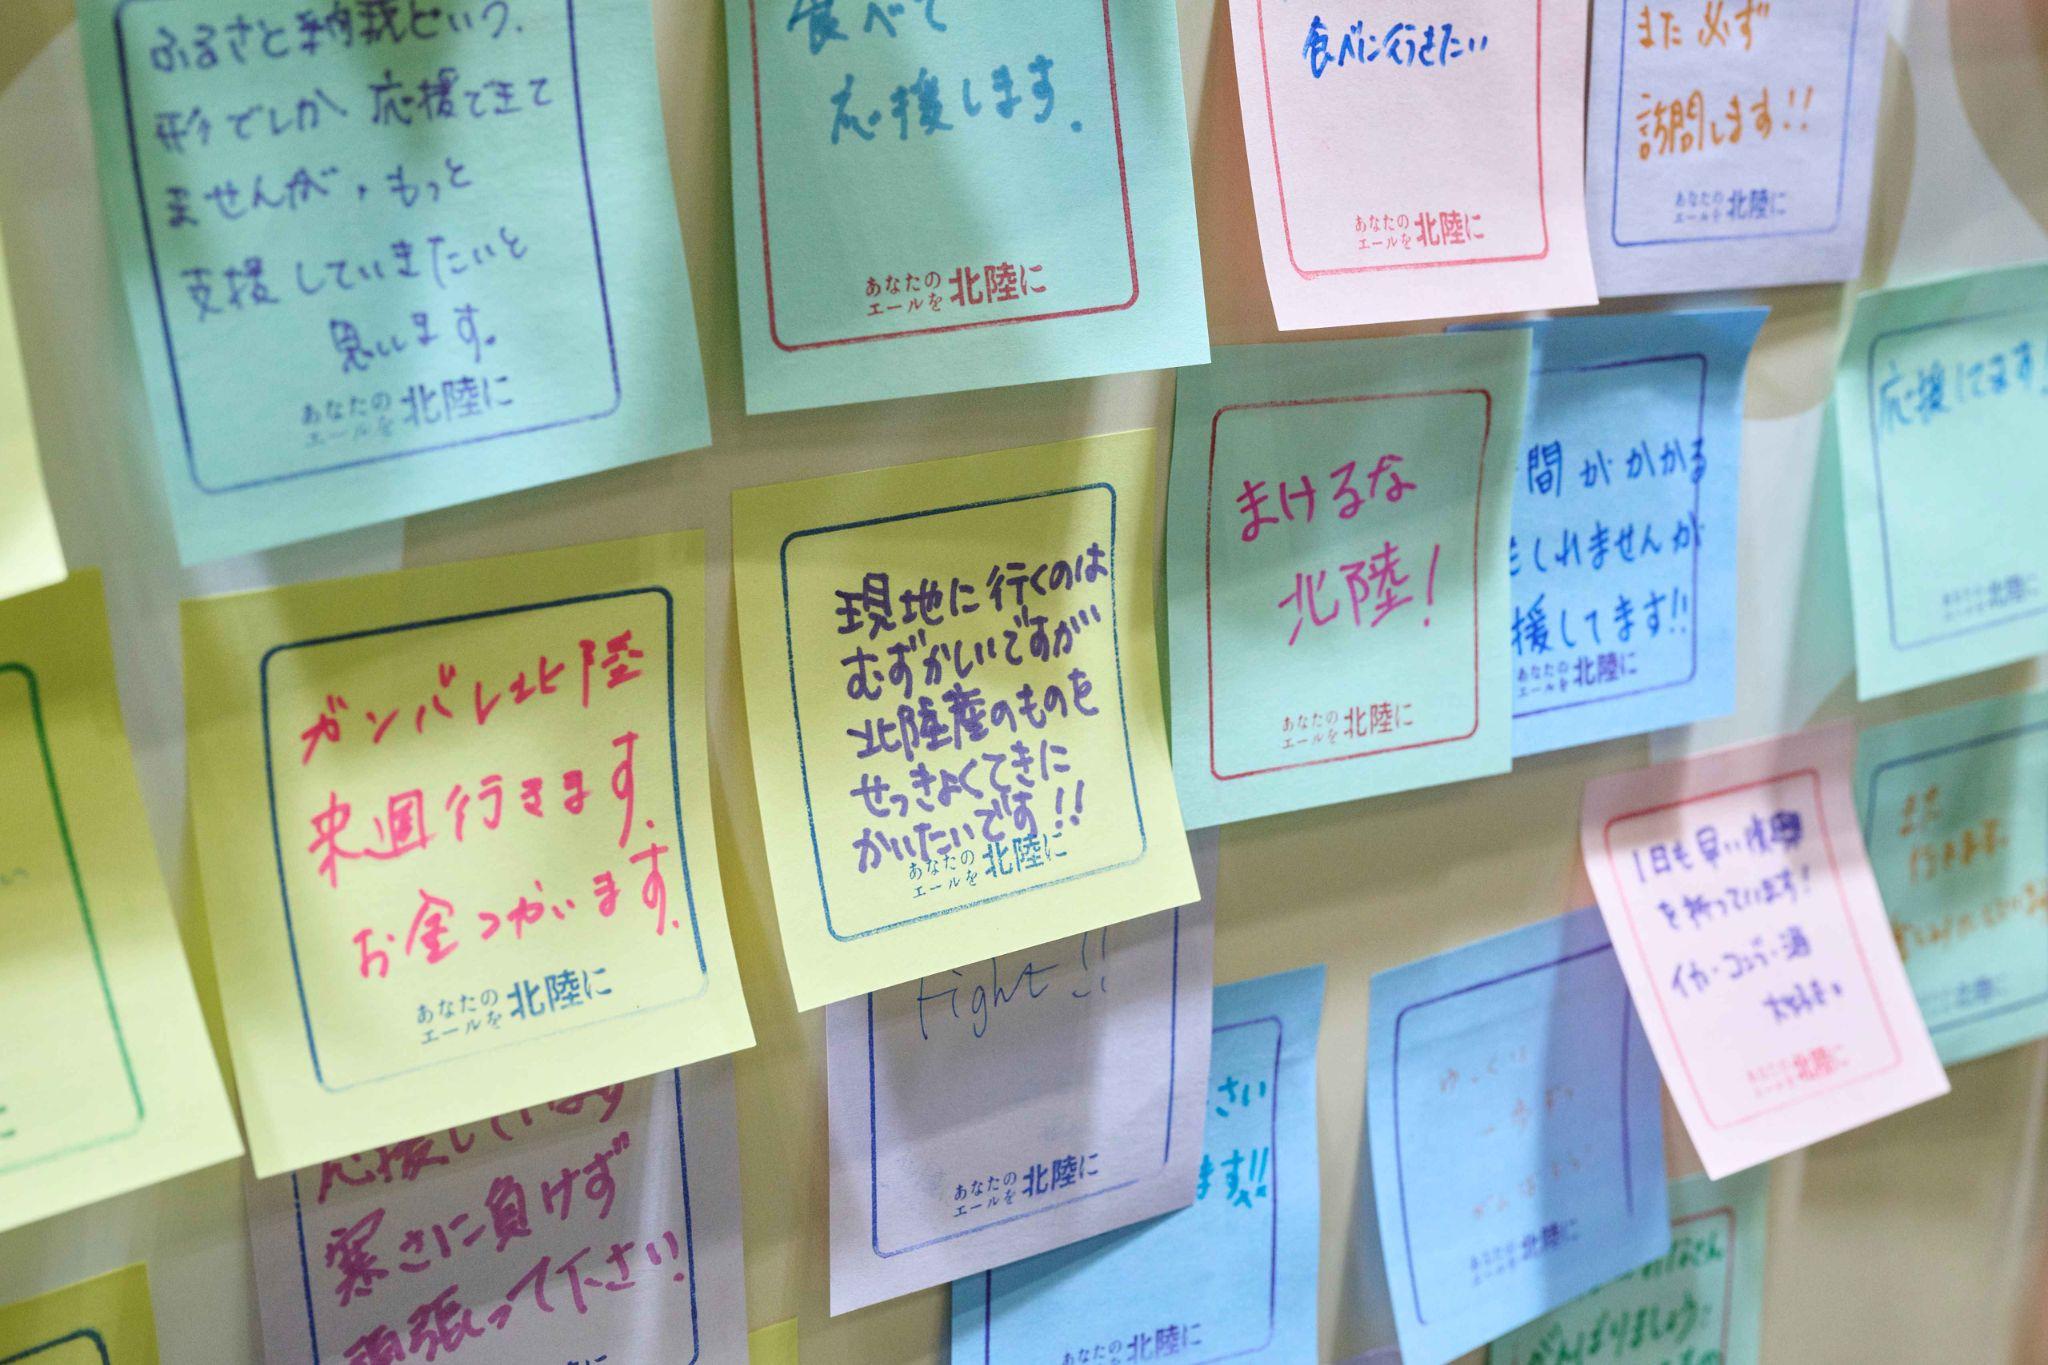 ふるさと納税という、
形でしか、応援できて
ませんが、もっと
支援していきたいと
思います。
あなたの
エールを 北陸に
食べて
応援します.
あなたの
エールを 北陸に
食べに行きたい
あなたの
エールを 北陸に
また必ず
訪問します!!
あなたの
エールを 北陸に
ガンバレ北陸
来週行きます.
お金つかいます.
あなたの
エールを 北陸に
現地に行くのは
むずかしいですが
北陸産のものを
せっきょくてきに
かいたいです!!
あなたの
エールを 北陸に
まけるな
北陸!
あなたの
エールを 北陸に
間がかかる
もしれませんが
援してます!!
あなたの
エールを 北陸に
応援してます
北陸に
応援しています
寒さに負けず
頑張って下さい
Fight!!
あなたの
エールを 北陸に
さい
ます!!
あなたの
北陸に
あなたの
エールを 北陸に
1日も早い復興
を祈っています!
イカ・コンブ・酒
大好き。
あなたの
エールを 北陸に
また
北陸に
みなさん
がんばりましょう